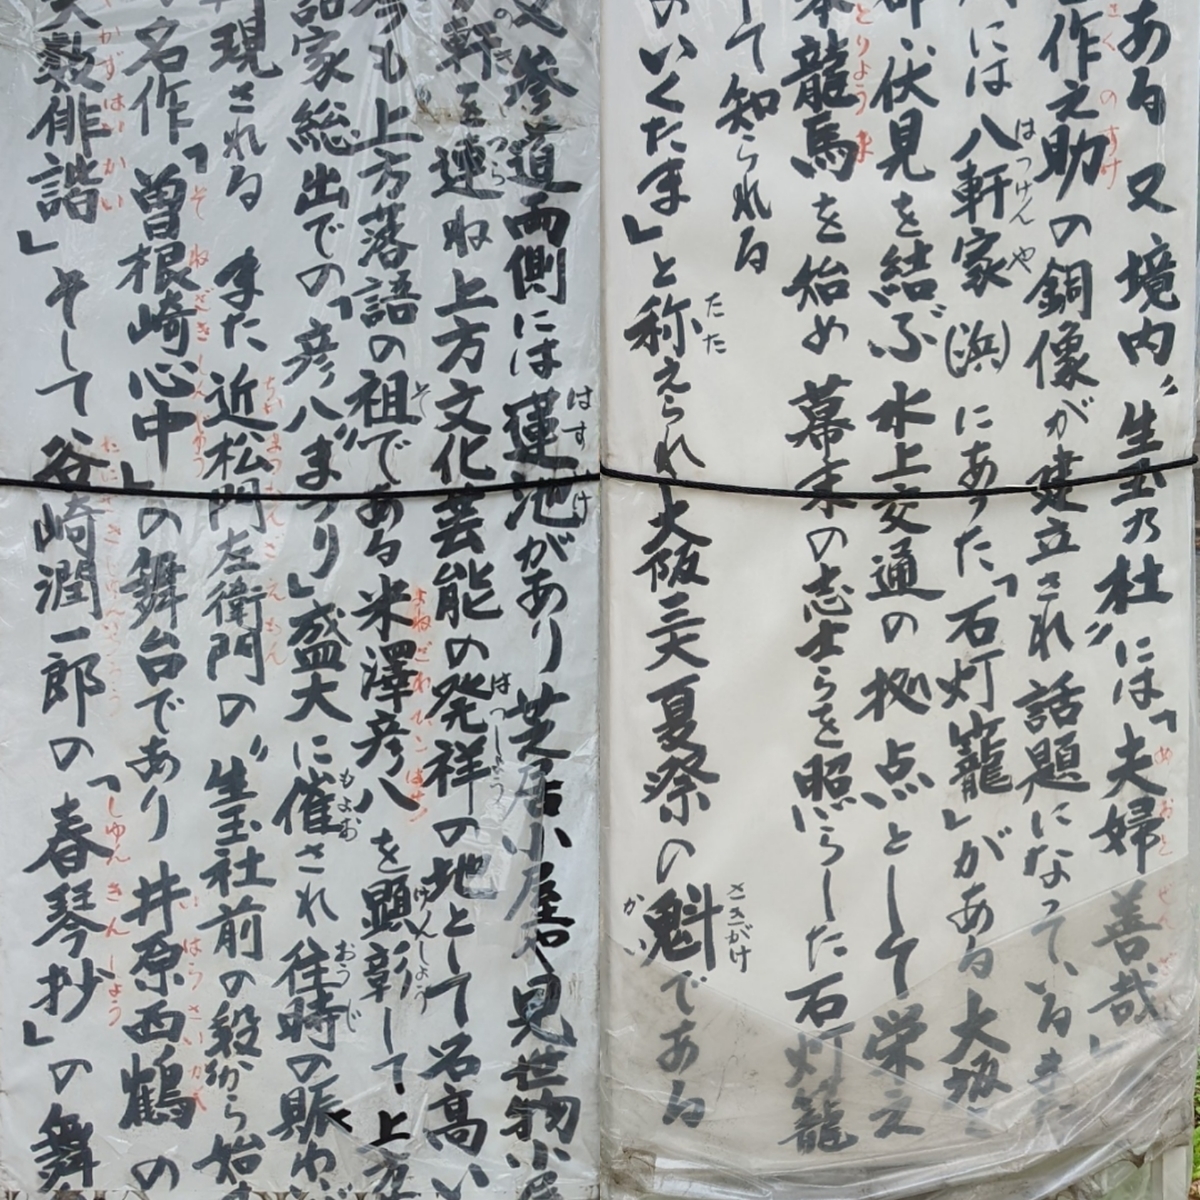 ある 又 境内〝生玉の杜〟には「夫婦善哉」
作之助の銅像が建立され話題になっているまた
には八軒家(浜)にあった「石灯籠」がある大阪
伏見を結ぶ水上交通の拠点として栄え
龍馬を始め 幕末の志士らを照らした石灯籠
して知られる
のいくたま」と称えられ大阪三大夏祭の魁である
参道両側には蓮池があり芝居小屋や見世物小屋
軒を連ね上方文化芸能の発祥の地として名高い
今も上方落語の〝祖〟である米澤彦八を顕彰して上方
家総出での「彦八まつり」盛大に催され往時の賑わ
現される また近松門左衛門の〝生玉社前の段〟から始
名作「曽根崎心中」の舞台であり 井原西鶴の
大数俳諧」そして、谷崎潤一郎の「春琴抄」の舞